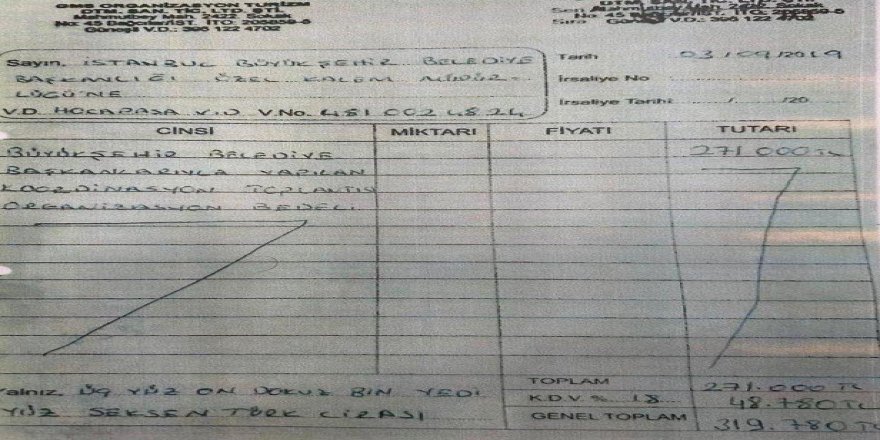 GMS ORGANİZASYON TURİZM
Mahmutbey Mah. 2422. Sokak
Güneşli V.D.: 396 122 4702
Sayın, İSTANBUL BÜYÜKŞEHİR BELEDİYE
BAŞKANLIĞI ÖZEL KALEM MÜDÜR-
LÜĞÜ'NE
V.D. HOCAPAŞA V.D V.No. 481 002 4824
Tarih 03/09/2019
İrsaliye No
İrsaliye Tarihi / /20
CİNSİ MİKTARI FİYATI TUTARI
BÜYÜKŞEHİR BELEDİYE 271.000 TL
BAŞKANLARIYLA YAPILAN
KOORDİNASYON TOPLANTISI
ORGANİZASYON BEDELİ
Yalnız, ÜÇ YÜZ ON DOKUZ BİN YEDİ
YÜZ SEKSEN TÜRK LİRASI
TOPLAM 271.000 TL
K.D.V % 18 48.780 TL
GENEL TOPLAM 319.780 TL